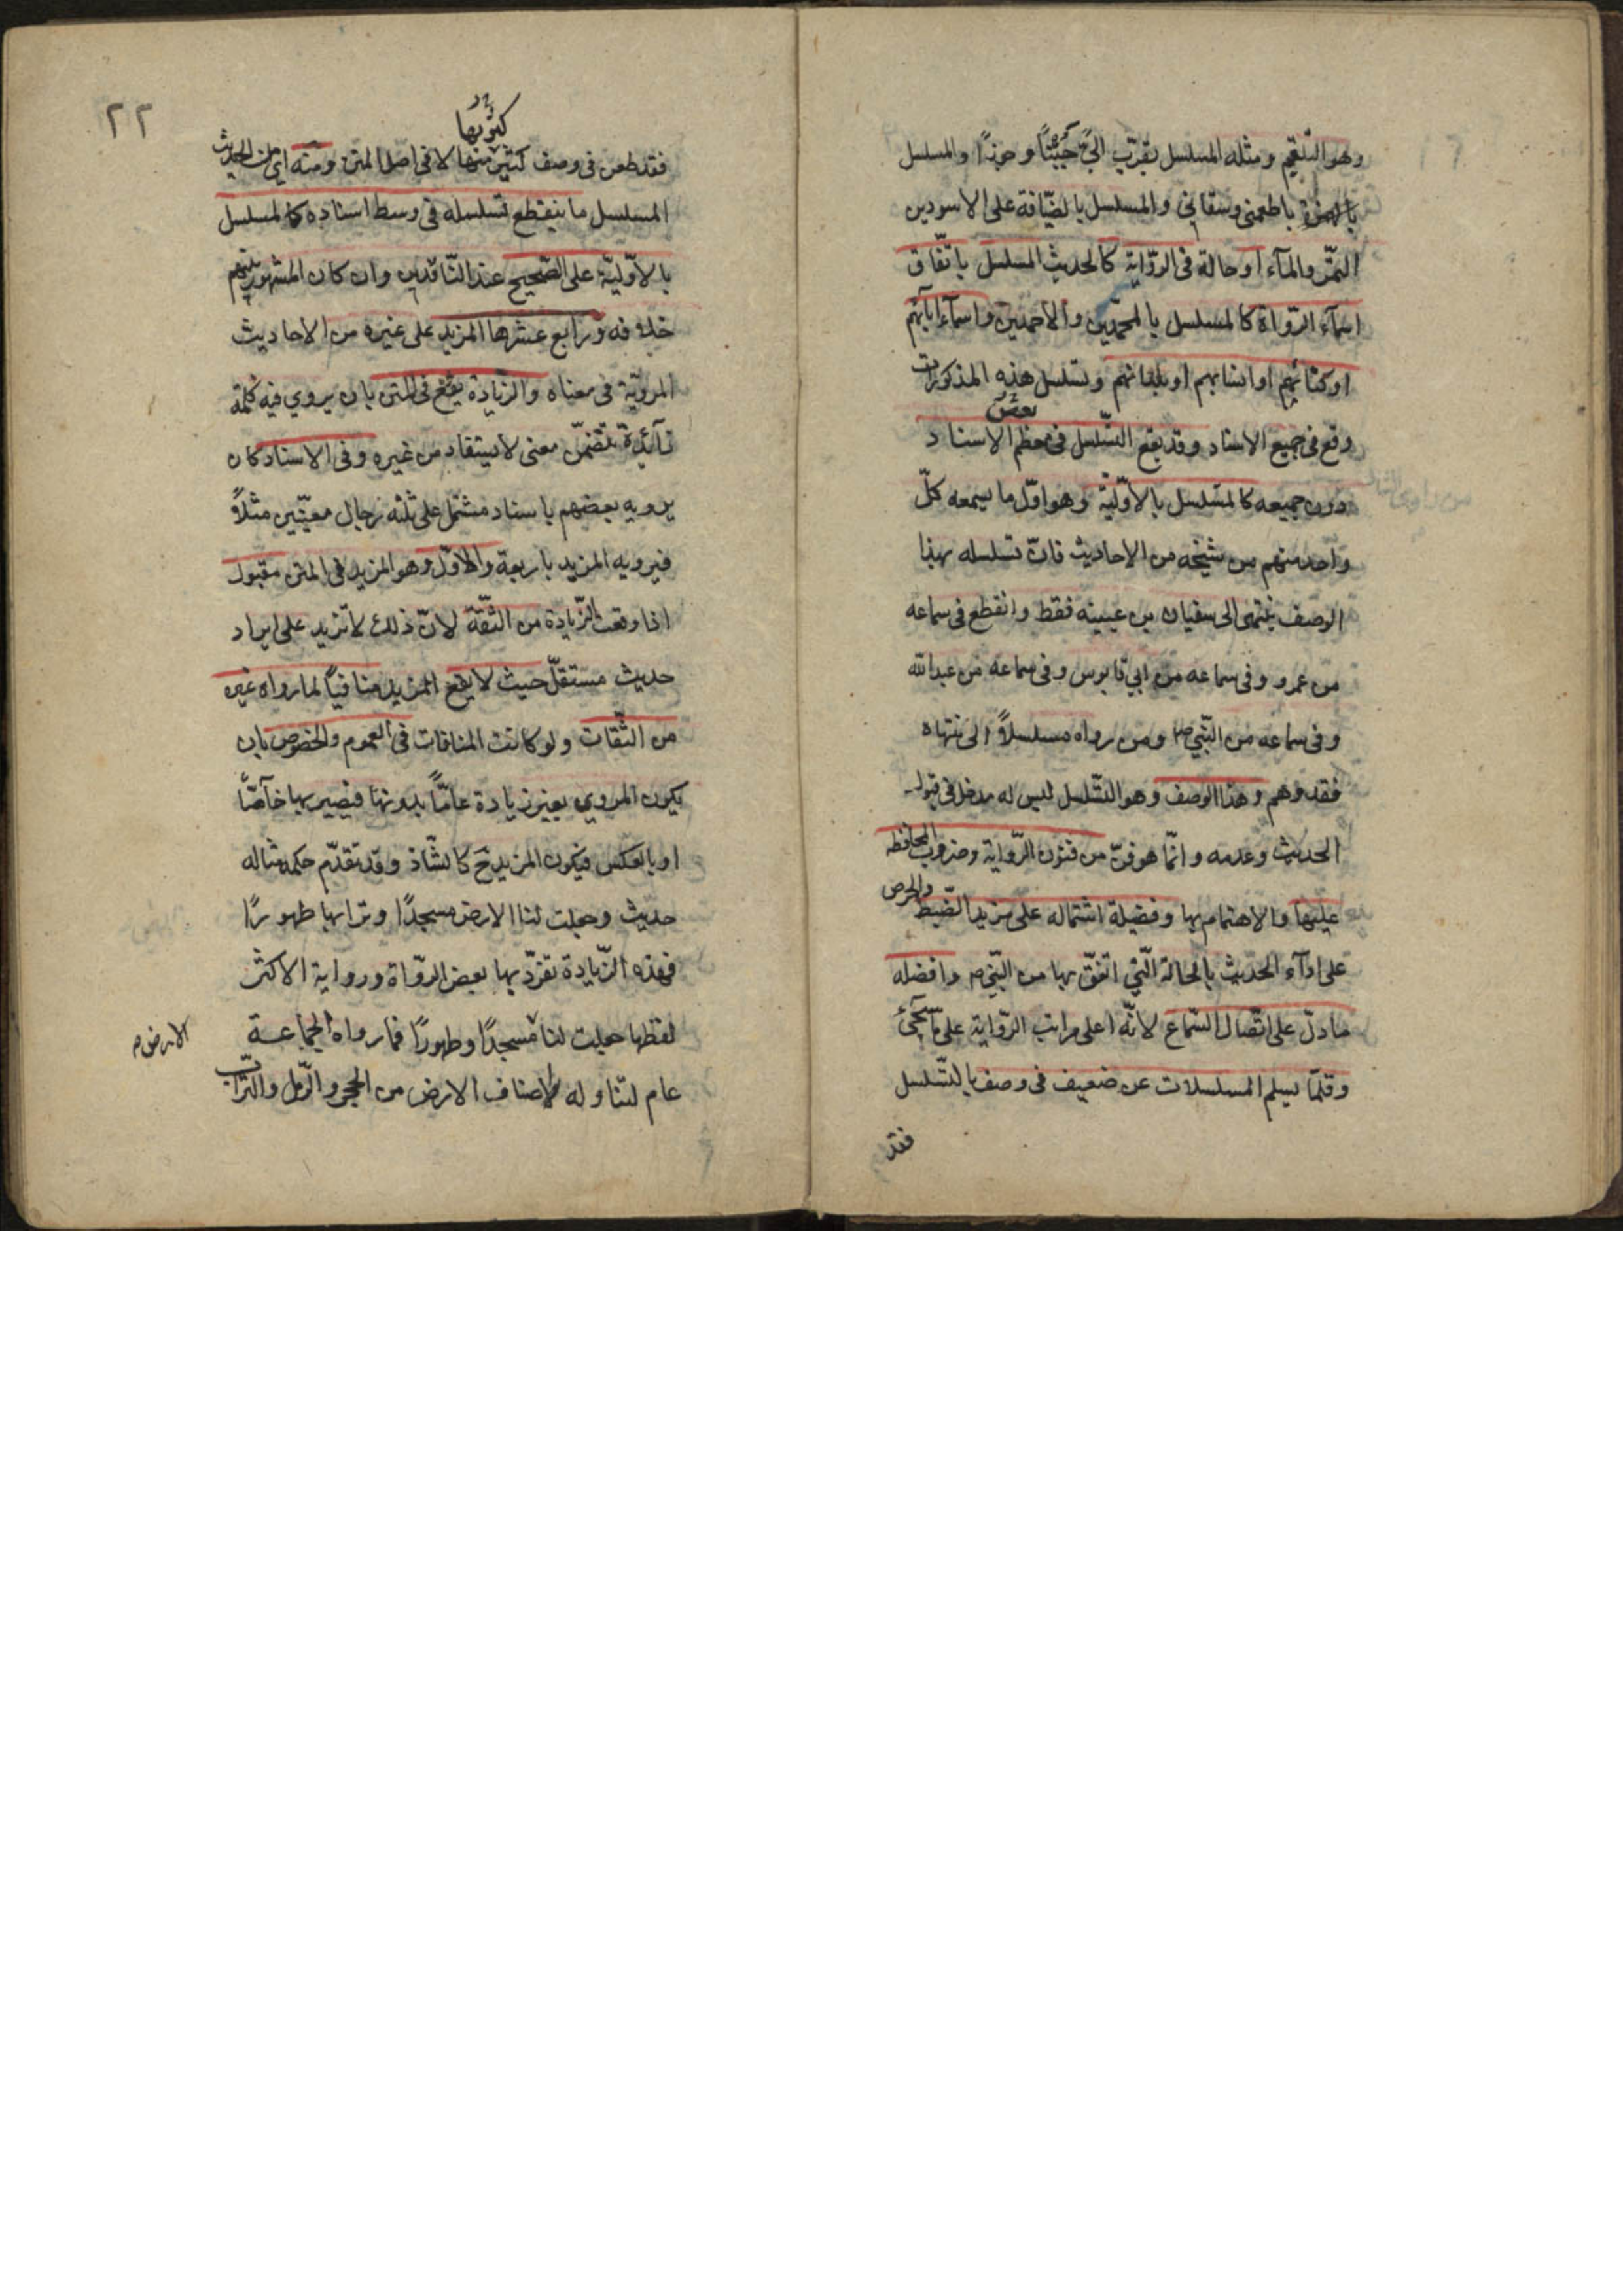 وهو التلقيم ومثله المسلسل بقرّب اليّ جبنًا وجوزًا والمسلسل
باطعمني وسقاني والمسلسل بالضّيافة على الاسودين
التمر والمآء او حالة فى الرّواية كالحديث المسلسل باتّفاق
اسمآء الرّواة كالمسلسل بالمحمّدين والاحمدين واسمآء ابآئهم
او كنائهم او انسابهم او بلدانهم وتسلسل هذه المذكورات
وقع فى جميع الاسناد وقد يقع التّسلسل فى معظم الاسناد
دون جميعه كالمسلسل بالاوّليّة وهو اوّل ما يسمعه كلّ
واحد منهم من شيخه من الاحاديث فانّ تسلسله بهذا
الوصف ينتهى الى سفيان بن عيينه فقط وانقطع فى سماعه
من عمرو وفى سماعه من ابي قابوس وفى سماعه من عبدالله
وفى سماعه من النّبيّ ص ومن رواه مسلسلاً الى منتهاه
فقد وهم وهذا الوصف وهو التسلسل ليس له مدخل فى قبول
الحديث وعدمه وانّما هو فنّ من فنون الرّواية وضروب المحافظه
عليها والاهتمام بها وفضيلة اشتماله على مزيد الضّبط والحرص
على ادآء الحديث بالحالة الّتي اتفق بها من النّبي ص وافضله
ما دلّ على اتّصال السّماع لانّه اعلى مراتب الرّواية على ما سيجيئ
وقلّما يسلم المسلسلات عن ضعيف فى وصف بالتّسلسل
فقد
٢٢
فقد طعن فى وصف كثير منها لا فى اصل المتن ومنه اي من الحديث
المسلسل ما ينقطع تسلسله فى وسط اسناده كالمسلسل
بالاوّليّة على الصّحيح عند النّاقدين وان كان المشهور بينهم
خلافه ورابع عشرها المزيد على غيره من الاحاديث
المرويّة فى معناه والزّيادة يقع فى المتن بان يروي فيه كلمة
زآئدة تتضمّن معنى لا يستفاد من غيره وفى الاسناد كان
يرويه بعضهم باسناد مشتمل على ثلثه رجال معيّنين مثلاً
فيرويه المزيد باربعة والاوّل وهو المزيد فى المتن مقبول
اذا وقعت الزّيادة من الثّقة لانّ ذلك لا تزيد على ايراد
حديث مستقلّ حيث لا يقع المزيد منافياً لما رواه غيره
من الثّقات ولو كانت المنافات فى العموم والخصوص بان
يكون المروي بغير زيادة عامّاً بدونها فيصير بها خآصّاً
او بالعكس فيكون المزيد ح كالشّاذ وقد تقدّم حكمه مثاله
حديث وجعلت لنا الارض مسجدًا وترابها طهورًا
فهذه الزّيادة تفرّد بها بعض الرّواة ورواية الاكثر
لفظها جعلت لنا مسجدًا وطهورًا فما رواه الجماعة
الارض ص
عام لتناوله لاصناف الارض من الحجر والرّمل والتّراب